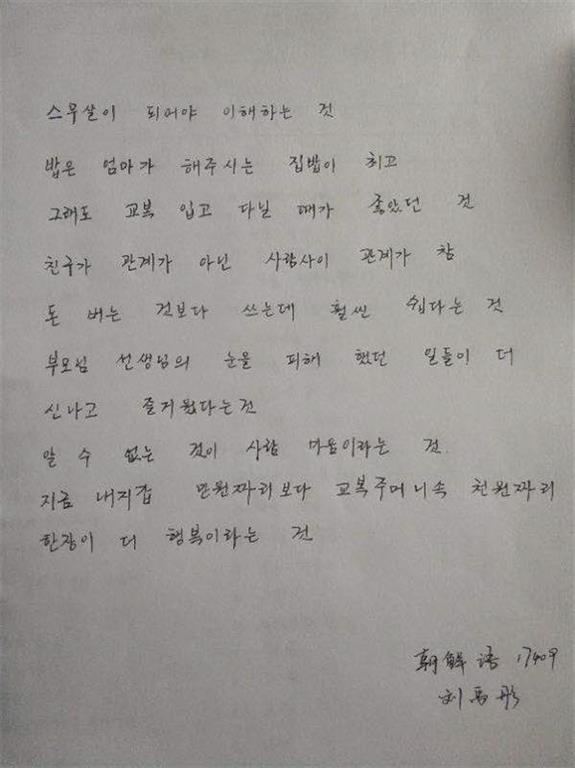 스무살이 되어야 이해하는 것
밥은 엄마가 해주시는 집밥이 최고
그래도 교복 입고 다닐 때가 좋았던 것
친구가 관계가 아닌 사람사이 관계가 참
돈 버는 것보다 쓰는데 훨씬 쉽다는 것
부모님 선생님의 눈을 피해 했던 일들이 더
신나고 즐거웠다는것
알 수 없는 것이 사람 마음이라는 것.
지금 내지갑 만원짜리보다 교복주머니속 천원짜리
한장이 더 행복이라는 것
朝鲜语 17409
刘禹彤